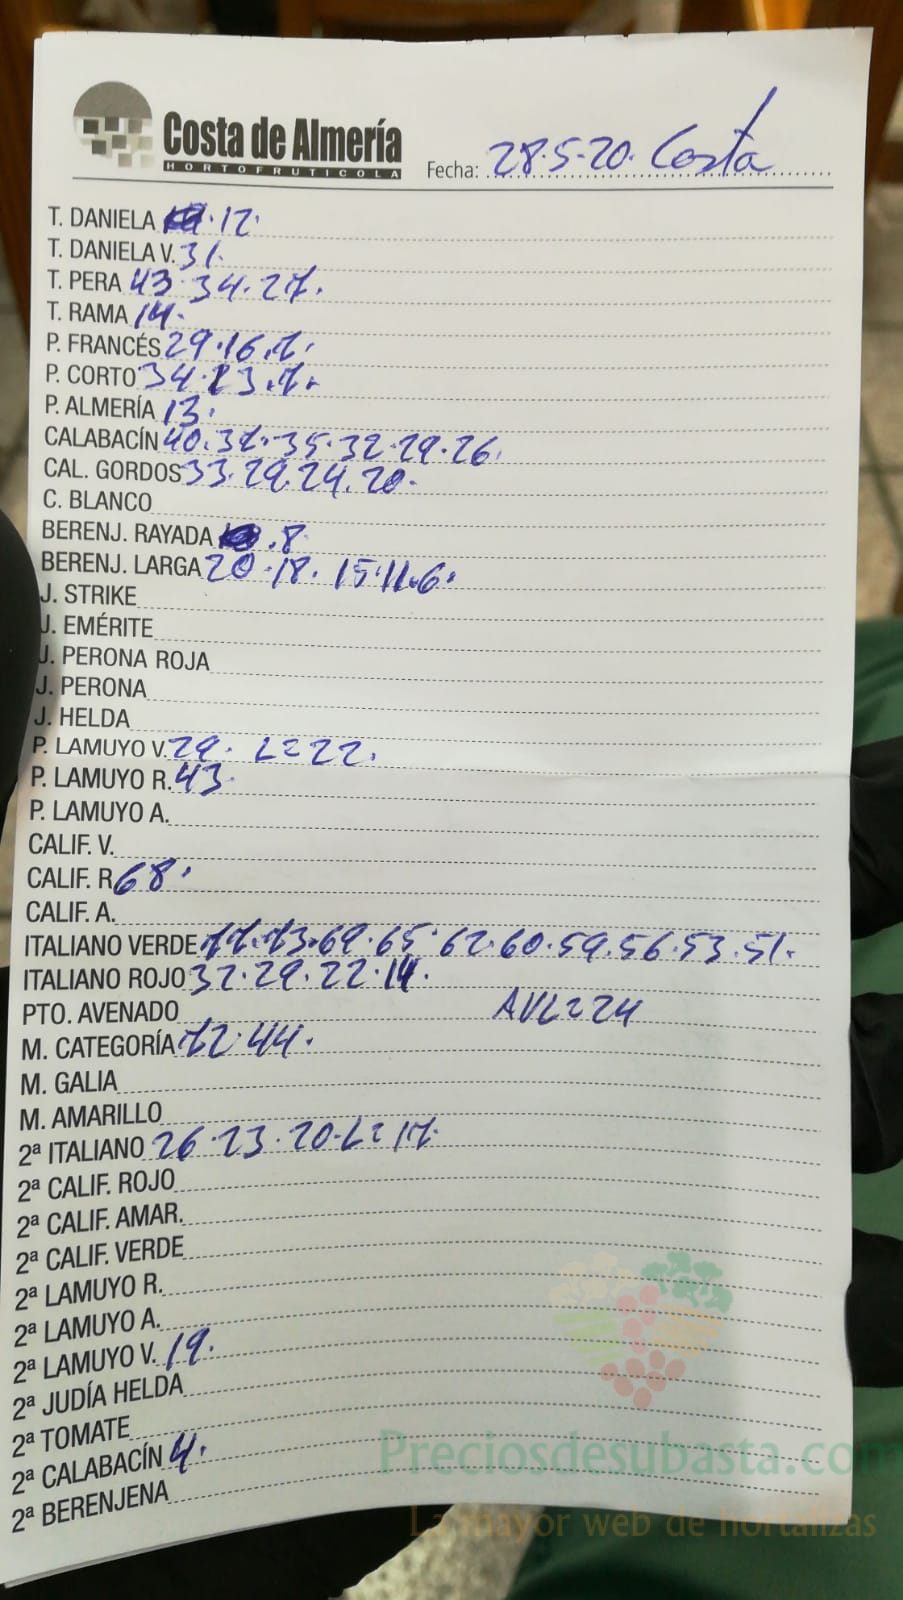 Costa de Almería
HORTOFRUTICOLA
Fecha: 28·5-20· Costa
T. DANIELA ·12·
T. DANIELA V. 31·
T. PERA 43·34·27·
T. RAMA 14·
P. FRANCÉS 29·16·7·
P. CORTO 34·23·7·
P. ALMERÍA 13·
CALABACÍN 40·37·35·32·29·26·
CAL. GORDOS 33·29·24·20·
C. BLANCO
BERENJ. RAYADA ·8
BERENJ. LARGA 20·18·15·11·6·
J. STRIKE
J. EMÉRITE
J. PERONA ROJA
J. PERONA
J. HELDA
P. LAMUYO V. 29· L=22·
P. LAMUYO R. 43·
P. LAMUYO A.
CALIF. V.
CALIF. R 68·
CALIF. A.
ITALIANO VERDE 77·73·69·65·62·60·59·56·53·51·
ITALIANO ROJO 32·29·22·14·
PTO. AVENADO AVL=24
M. CATEGORÍA 72·44·
M. GALIA
M. AMARILLO
2ª ITALIANO 26·23·20·L=17·
2ª CALIF. ROJO
2ª CALIF. AMAR.
2ª CALIF. VERDE
2ª LAMUYO R.
2ª LAMUYO A.
2ª LAMUYO V. 19·
2ª JUDÍA HELDA
2ª TOMATE
2ª CALABACÍN 4·
2ª BERENJENA
Preciosdesubasta.com
La mayor web de hortalizas